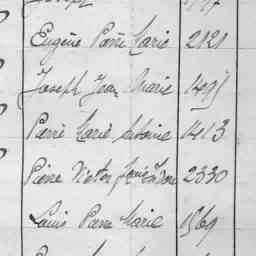 Joseph
Eugène Pierre Marie 2121
Joseph Jean Marie
Pierre Marie Antoine 1413
Pierre Victor 2330
Louis Pierre Marie 1369